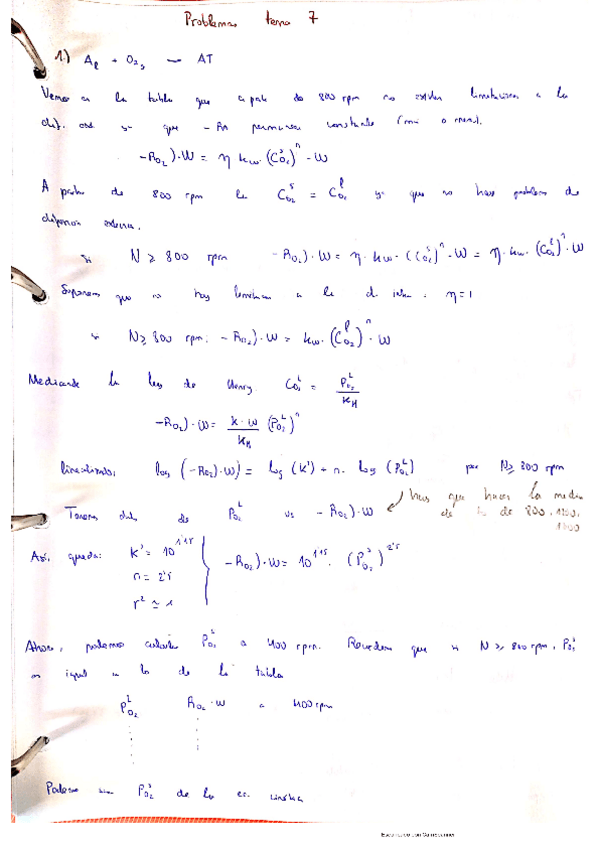 Problemas tema 7
1.) Al + O2g — AT
Vemos en la tabla que a partir de 800 rpm no existen limitaciones a la
dif. ext ya que -RA permanece constante (más o menos).
-RO2)·W = η kw·(CO2^s)^n·W
A partir de 800 rpm la CO2^s = CO2^l ya que no hay problemas de
difusión externa.
si N ≥ 800 rpm -RO2)·W = η·kw·(CO2^s)^n·W = η·kw·(CO2^l)·W
Suponemos que no hay limitaciones a la d. interna: η=1
si N ≥ 800 rpm: -RO2)·W = kw·(CO2^l)^n·W
Mediante la ley de Henry: CO2^L = PO2^L / KH
-RO2)·W = k·W / KH (PO2^L)^n
Linealizando: log (-RO2)·W) = Log (k') + n· Log (PO2^L) para N ≥ 800 rpm
hay que hacer la media
Tenemos datos de PO2^L vs -RO2)·W
de lo de 800, 1200,
Así, queda: K' = 10^1'15
-RO2)·W = 10^1'15 · (PO2^s)^2'5
n = 2'5
r² ≃ 1
Ahora, podemos calcular PO2^s a 400 rpm. Recordemos que si N ≥ 800 rpm, PO2^s
es igual a lo de la tabla
PO2^L RO2·W a 400 rpm
Podemos PO2^s de la ec. cinética
Escaneado con CamScanner